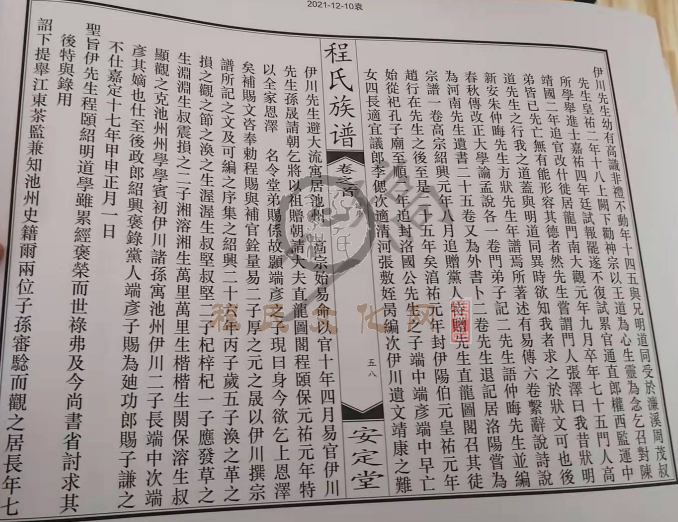 2021-12-10袁
伊川先生幼有高識非禮不動年十四五與兄明道同受於濂溪周茂叔
先生皇祐二年十八上闕下勸神宗以王道為心生靈為念乞召對陳
所學舉進士嘉祐四年廷試報罷遂不復試累官通直郎權西監運中
靖國二年追官改什徙居龍門南大觀元年九月卒年七十五門人高
弟皆已先亡無有能形容其德者然先生嘗謂門人張澤曰我昔狀明
道先生之行我之道蓋與明道同異時欲知我者求之於狀文可也後
新安朱仲晦先生方狀先生年譜焉所著述有易傳六卷繫辭說詩說
春秋傳改正大學論孟說各一卷門弟子記二先生語仲晦先生並編
為河南先生遺書二十五卷又為外書卜二卷先生退記居洛陽嘗為
宗譜一卷高宗紹興元年 月追贈黨人特贈先生直龍圖閣召其徒
趙行在先生之後至是二十五年矣淯祐元年封伊陽伯元皇祐元年
始從祀孔子廟至順年追封洛國公先生之子端中端彥端中早亡
女四長適宜議郎李偲次適清河張敷姪苪編次伊川遺文靖康之難
程氏族谱
卷之
五八
安定堂
伊川先生避大流寓居池州 高宗始易命以官十年四月易官伊川
先生孫晟請朝乞將以祖贈朝請大夫直龍圖閣程頤保元祐元年特
以全家恩澤 名令堂弟賜係故顯端彥子 現日身今欲乞上恩澤
矣補賜文咨奉勅程賜與補官銓量易一子厚之元之晟以伊川撰宗
譜所記之文及可編之序集之紹興二十 丙子歲五子渙之革之
損之觀之節之渙之生渥渥生叔堅叔堅二子杞梓杞一子應發草之
生淵淵生叔震損之二子湘溶湘生萬里萬里生楷楷生関保溶生叔
顯觀之克池州州學學賓初伊川諸孫寓池州伊川二子長端中次端
彥其嫡也仕至後政郎紹興褒錄黨人端彥子賜為廸功郎賜子謙之
不仕嘉定十七年甲申正月一日
聖旨伊先生程頤紹明道學雖累經褒榮而世祿弗及今尚書省討求其
後特與錄用
詔下提舉江東茶監兼知池州史籍爾兩位子孫審驗而觀之居長年七